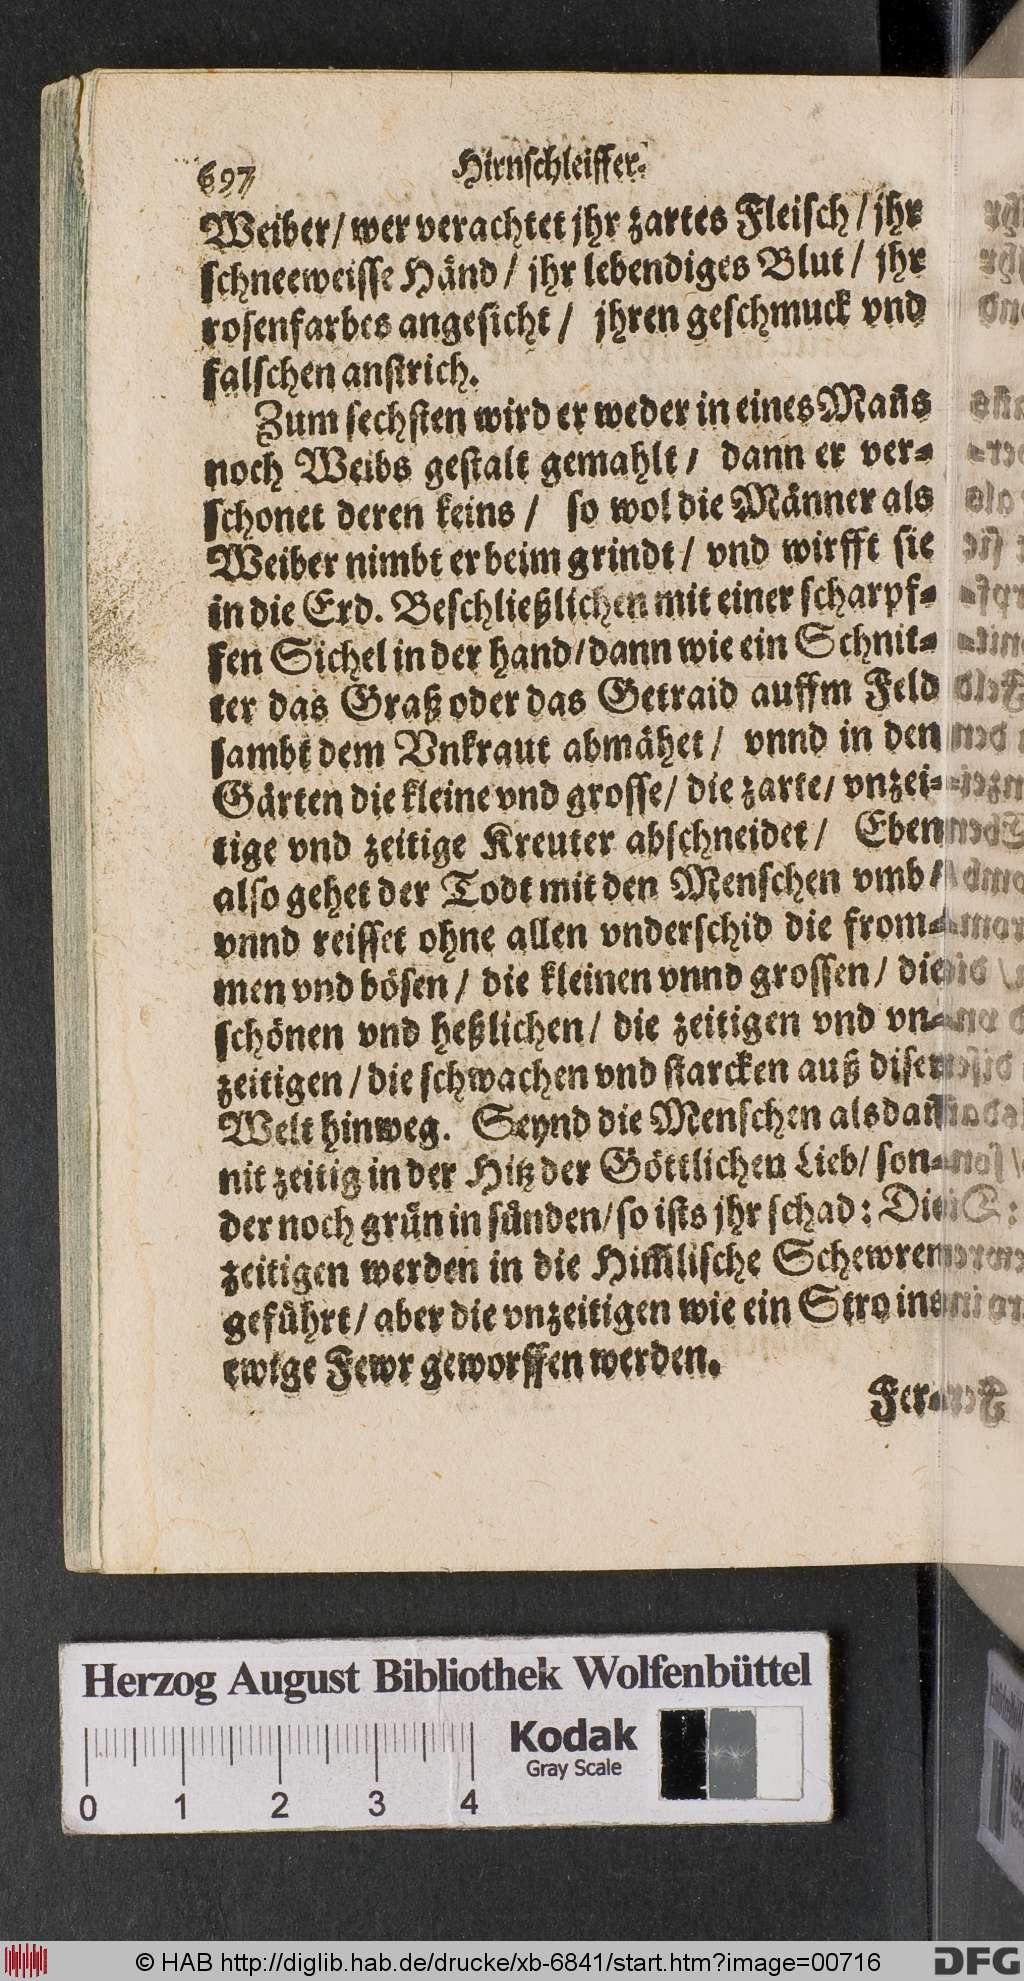 697
Hirnschleiffer.
Weiber / wer verachtet jhr zartes Fleisch / jhr
schneeweisse Händ / jhr lebendiges Blut / jhr
rosenfarbes angesicht / jhren geschmuck vnd
falschen anstrich.
Zum sechsten wird er weder in eines Mañs
noch Weibs gestalt gemahlt / dann er ver-
schonet deren keins / so wol die Männer als
Weiber nimbt er beim grindt / vnd wirfft sie
in die Erd. Beschließlichen mit einer scharpf-
fen Sichel in der hand / dann wie ein Schnit-
ter das Graß oder das Getraid auffm Feld
sambt dem Vnkraut abmähet / vnnd in den
Gärten die kleine vnd grosse / die zarte / vnzei-
tige vnd zeitige Kreuter abschneidet / Eben
also gehet der Todt mit den Menschen vmb /
vnnd reisset ohne allen vnderschid die from-
men vnd bösen / die kleinen vnnd grossen / die
schönen vnd heßlichen / die zeitigen vnd vn-
zeitigen / die schwachen vnd starcken auß diser
Welt hinweg. Seynd die Menschen alsdañ
nit zeitig in der Hitz der Göttlichen Lieb / son-
der noch grün in sünden / so ists jhr schad : Die
zeitigen werden in die Him̃lische Schewren
geführt / aber die vnzeitigen wie ein Stro ins
ewige Fewr geworffen werden.
Fer-
Herzog August Bibliothek Wolfenbüttel
Kodak
Gray Scale
0 1 2 3 4
© HAB http://diglib.hab.de/drucke/xb-6841/start.htm?image=00716
DFG